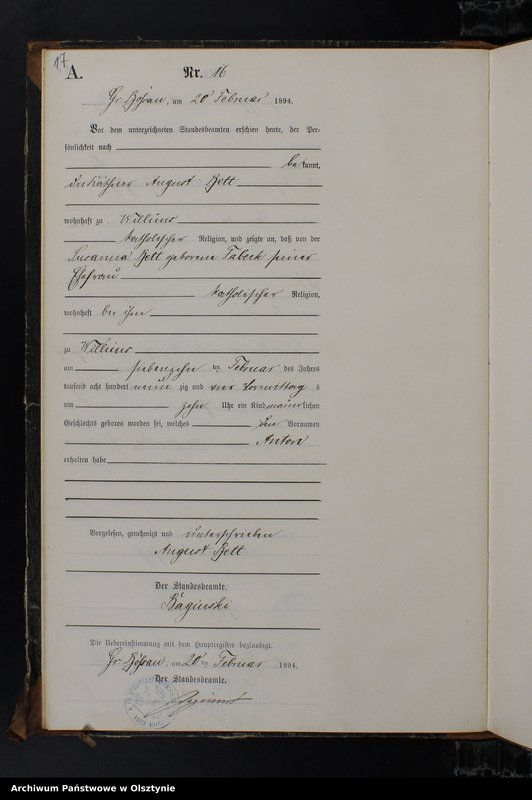 17
A.
Nr. 16
Gr. Kössau, am 20 Februar 1894.
Vor dem unterzeichneten Standesbeamten erschien heute, der Per-
sönlichkeit nach
bekannt,
August Bett
wohnhaft zu Willims
katholischer Religion, und zeigte an, daß von der
Susanna Bett geborene Taback seiner
Ehefrau
katholischer Religion,
wohnhaft bei ihm
zu Willims
am siebenzehn ten Februar des Jahres
tausend acht hundert neun zig und vier Vormittag s
um zehn Uhr ein Kind männlichen
Geschlechts geboren worden sei, welches den Vornamen
Anton
erhalten habe
Vorgelesen, genehmigt und unterschrieben
August Bett
Der Standesbeamte.
Baginski
Die Uebereinstimmung mit dem Hauptregister beglaubigt.
Gr. Kössau, am 20 ten Februar 1894.
Der Standesbeamte.
Archiwum Państwowe w Olsztynie